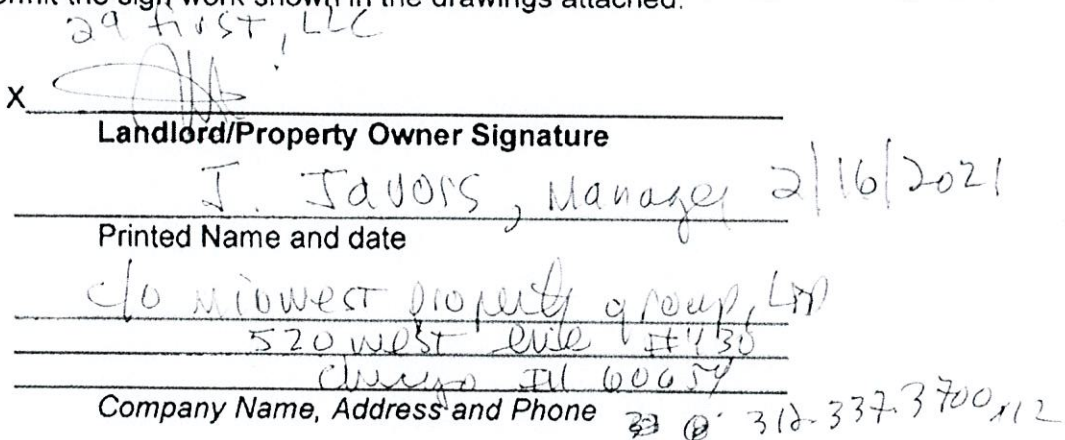 ermit the sign work shown in the drawings attached.
29 first, LLC
X
Landlord/Property Owner Signature
J. Javors, Manager 2/16/2021
Printed Name and date
c/o Midwest property group, Ltd
520 west erie #430
Chicago Ill 60654
Company Name, Address and Phone
312.337.3700 x12